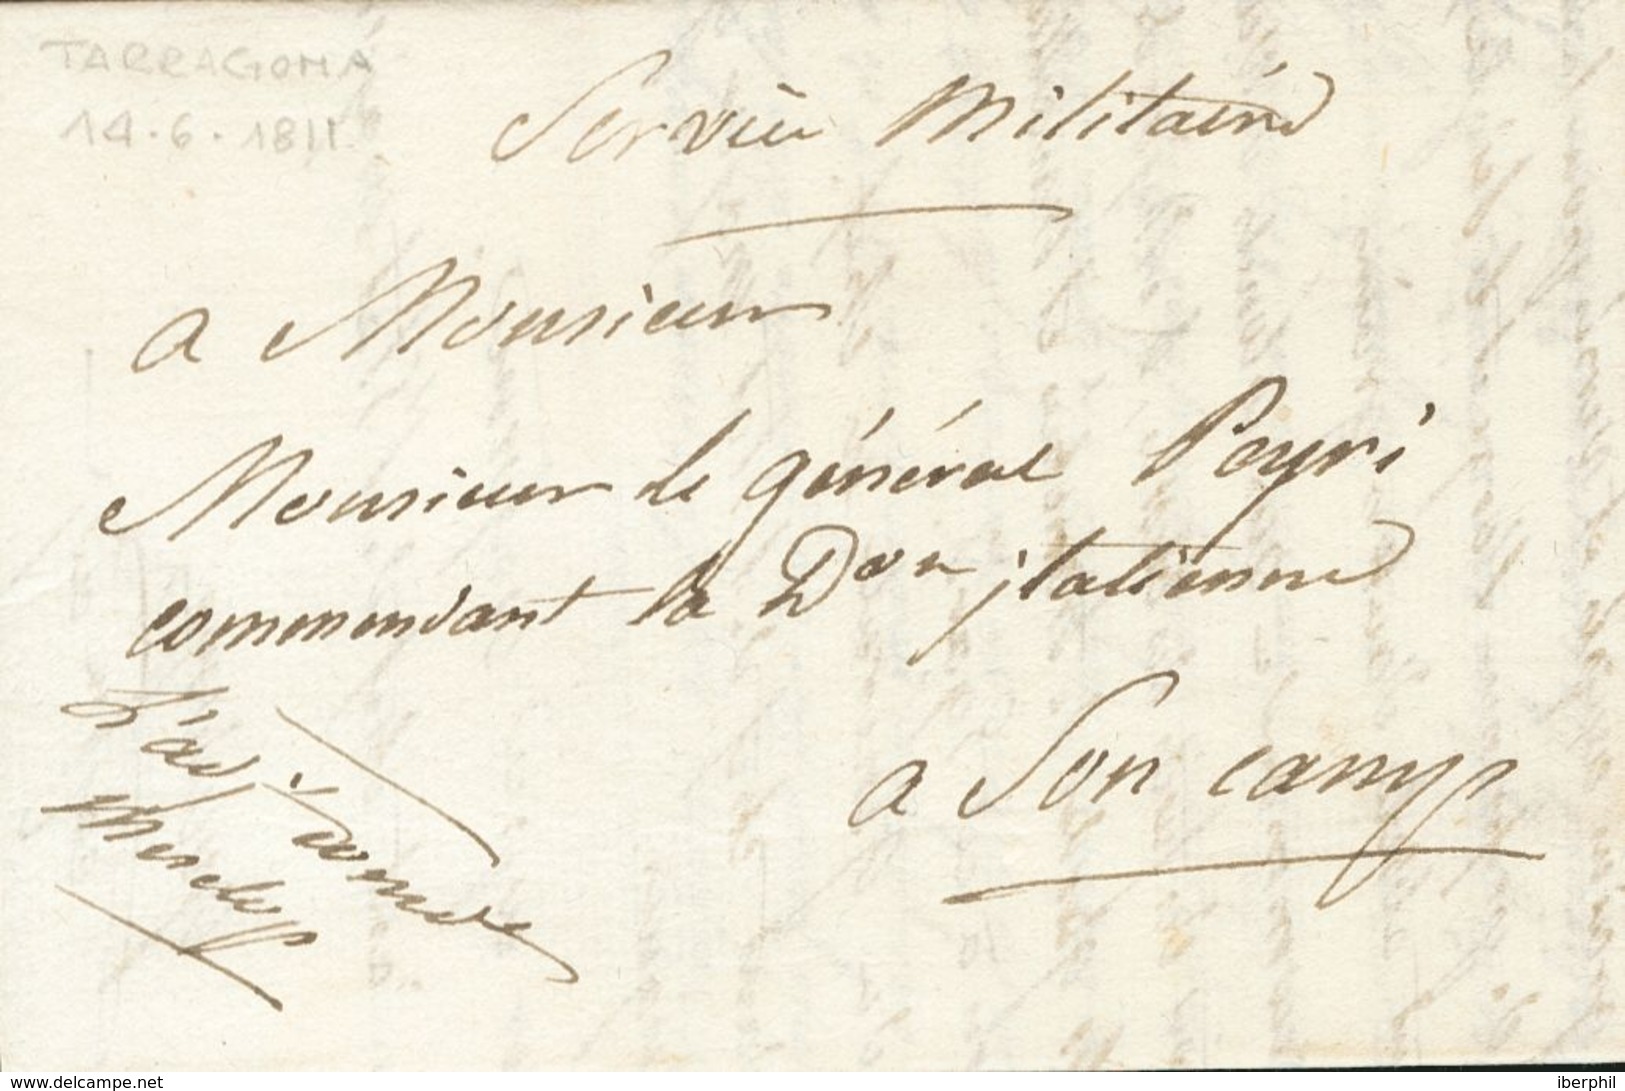 TARRAGONA
14·6·1811
Service Militaire
a Monsieur
Monsieur le général Peyri
commendant la Don italienne
a Son camp
L'adjt comdt
www.delcampe.net
iberphil